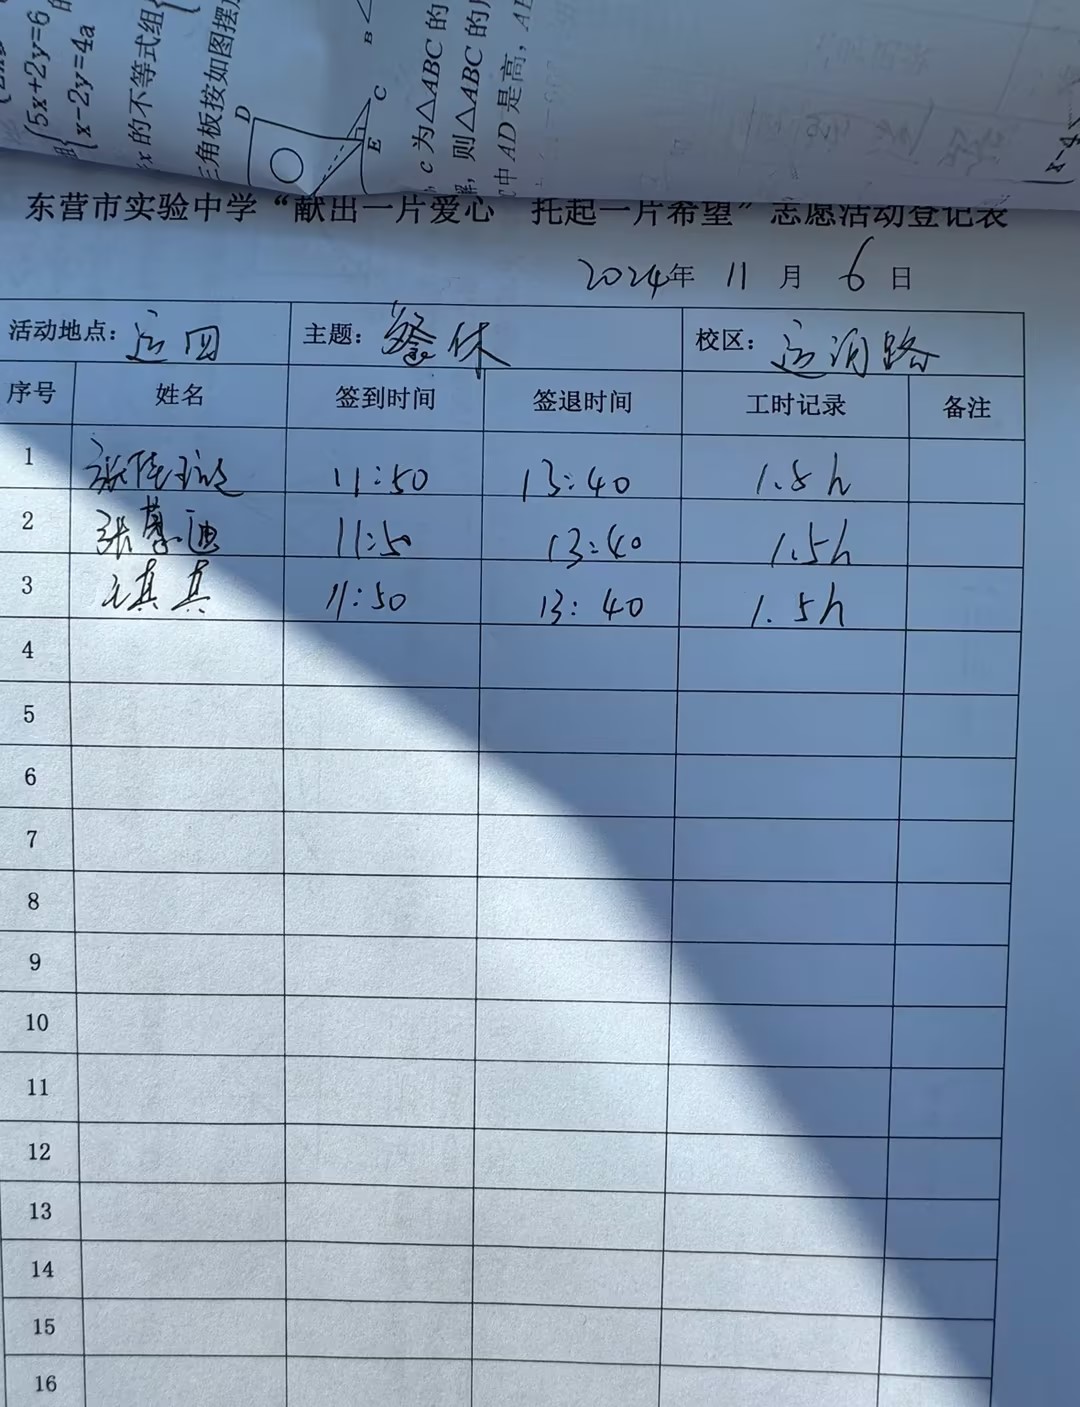 5x+2y=6
x-2y=4a
x的不等式组
三角板按如图摆
D
C
E
B
c 为△ABC 的
则△ABC 的
中 AD 是高，
东营市实验中学“献出一片爱心 托起一片希望”志愿活动登记表
2024年 11 月 6 日
活动地点：运四 主题：餐休 校区：运河路
序号 姓名 签到时间 签退时间 工时记录 备注
1 11:50 13:40 1.5h
2 张慕迪 11:50 13:40 1.5h
3 王真真 11:50 13:40 1.5h
4
5
6
7
8
9
10
11
12
13
14
15
16